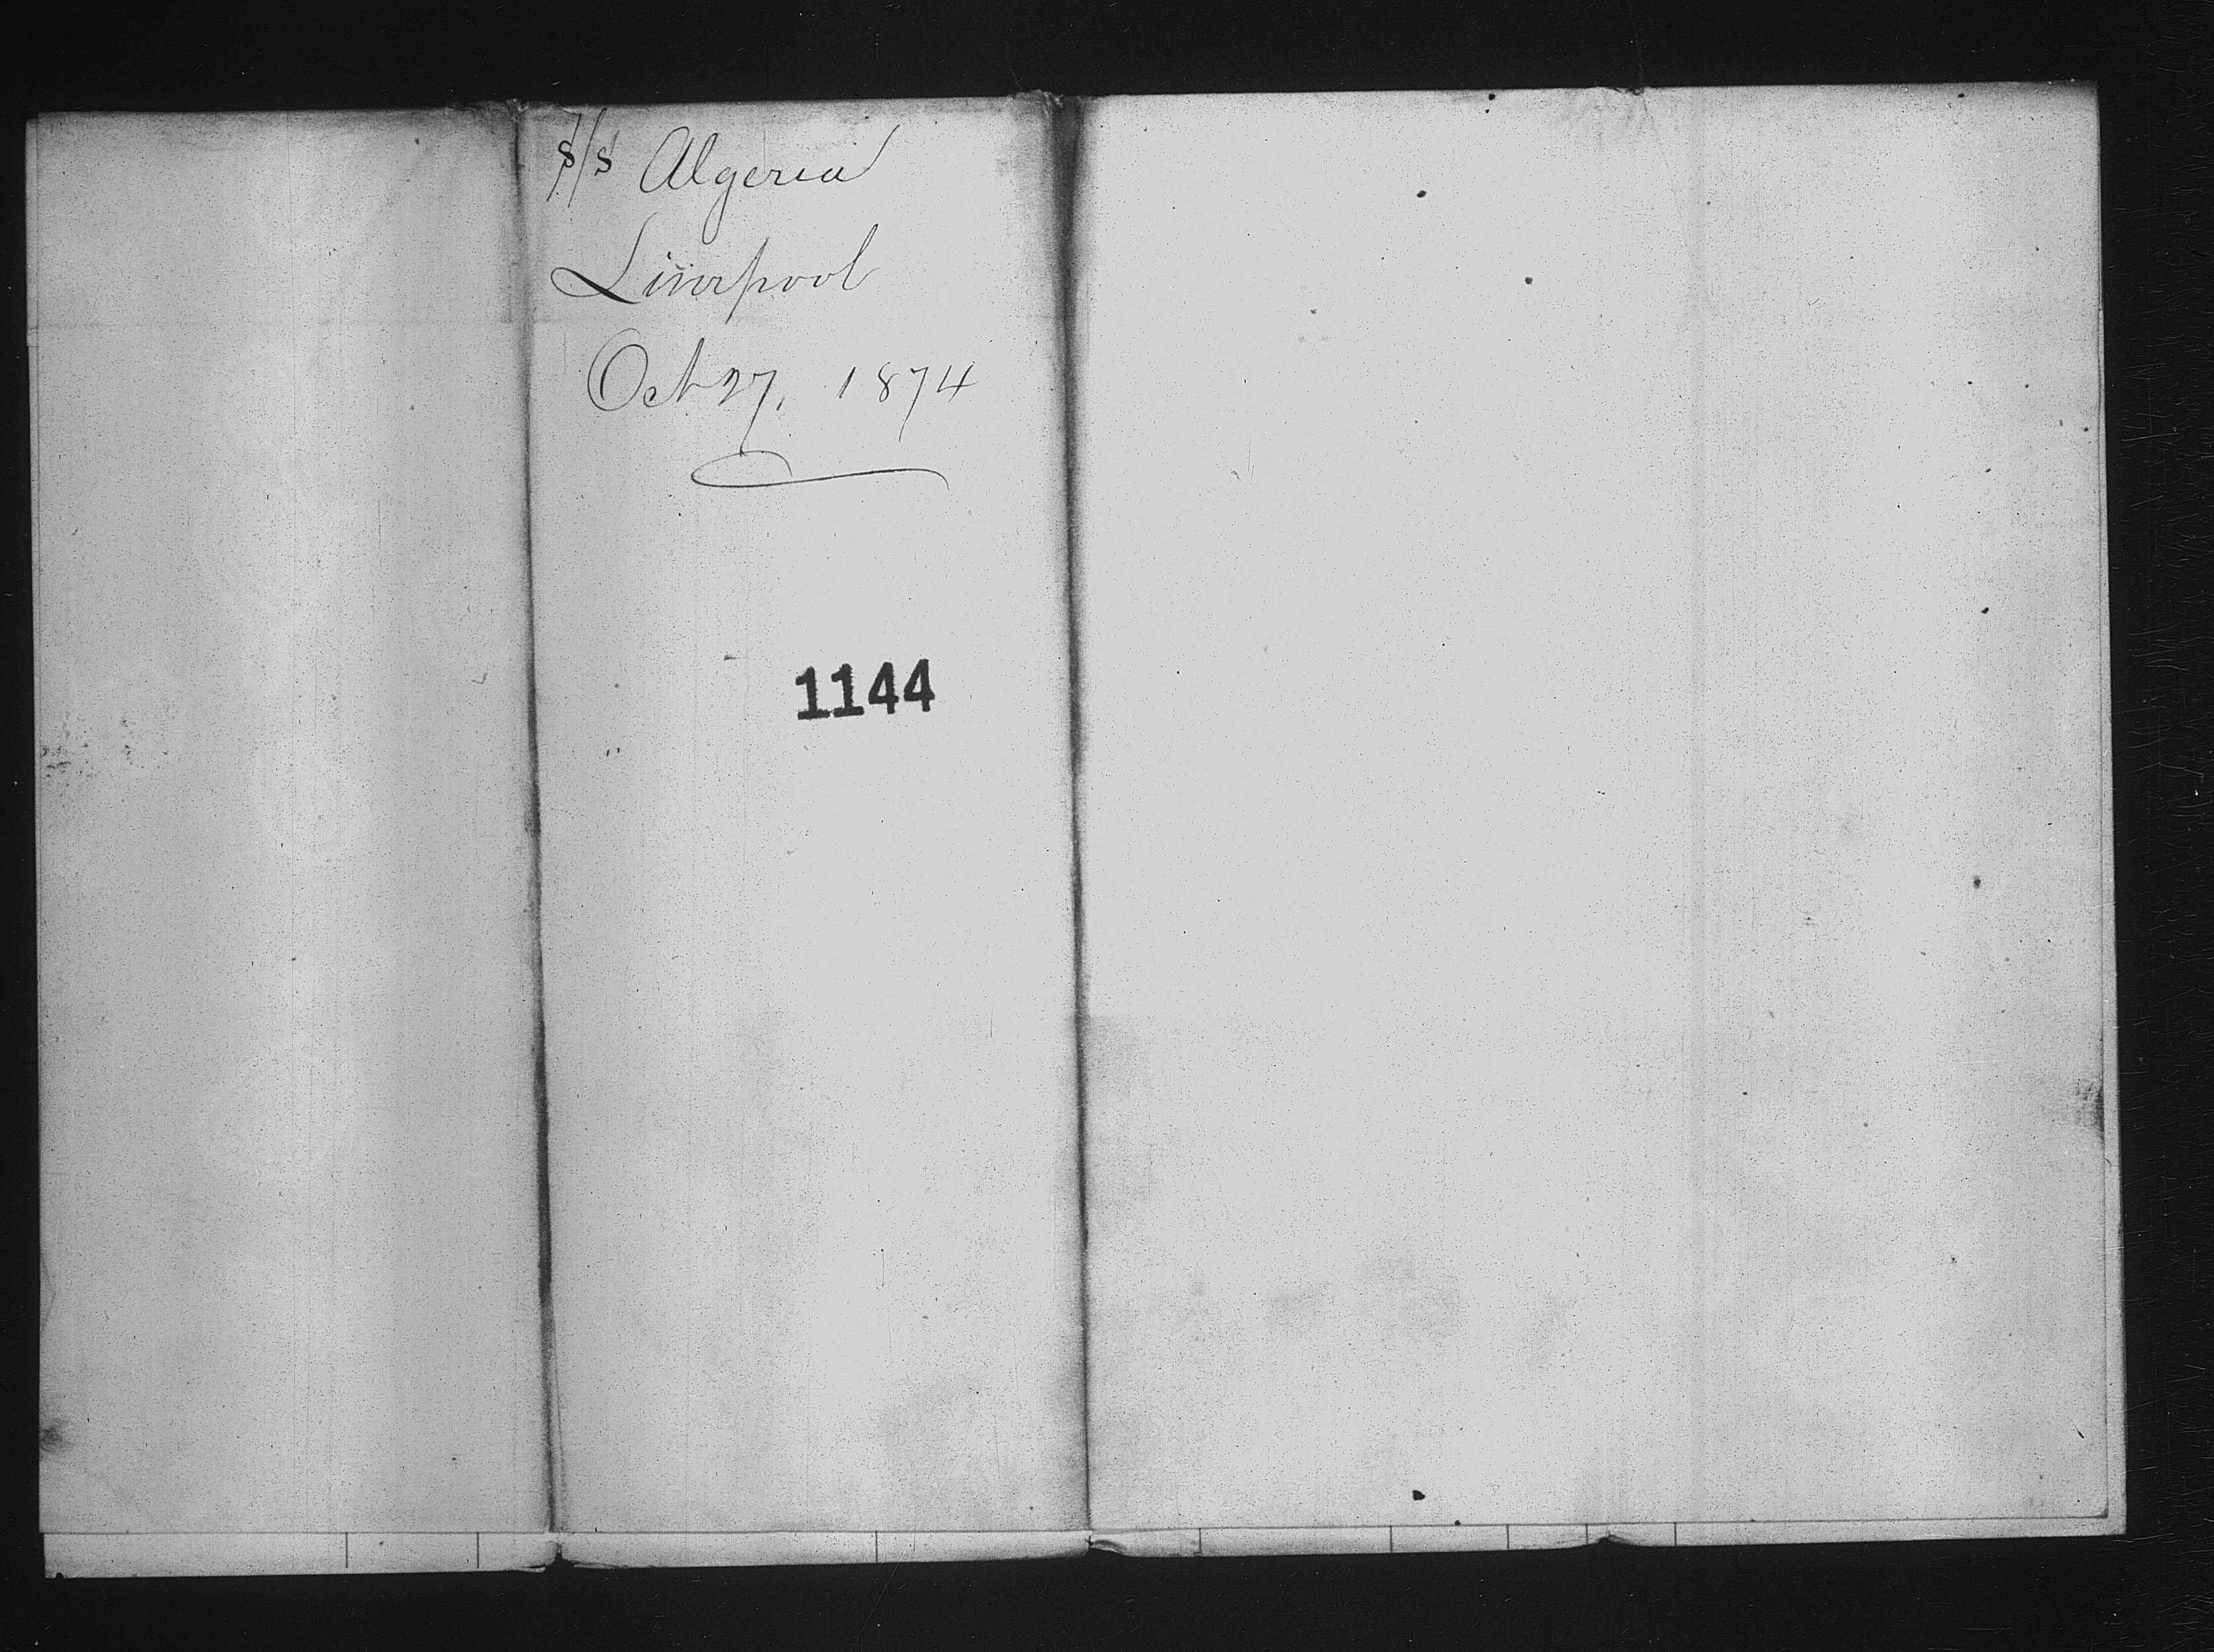 S/S Algeria
Liverpool
Oct 27, 1874
1144